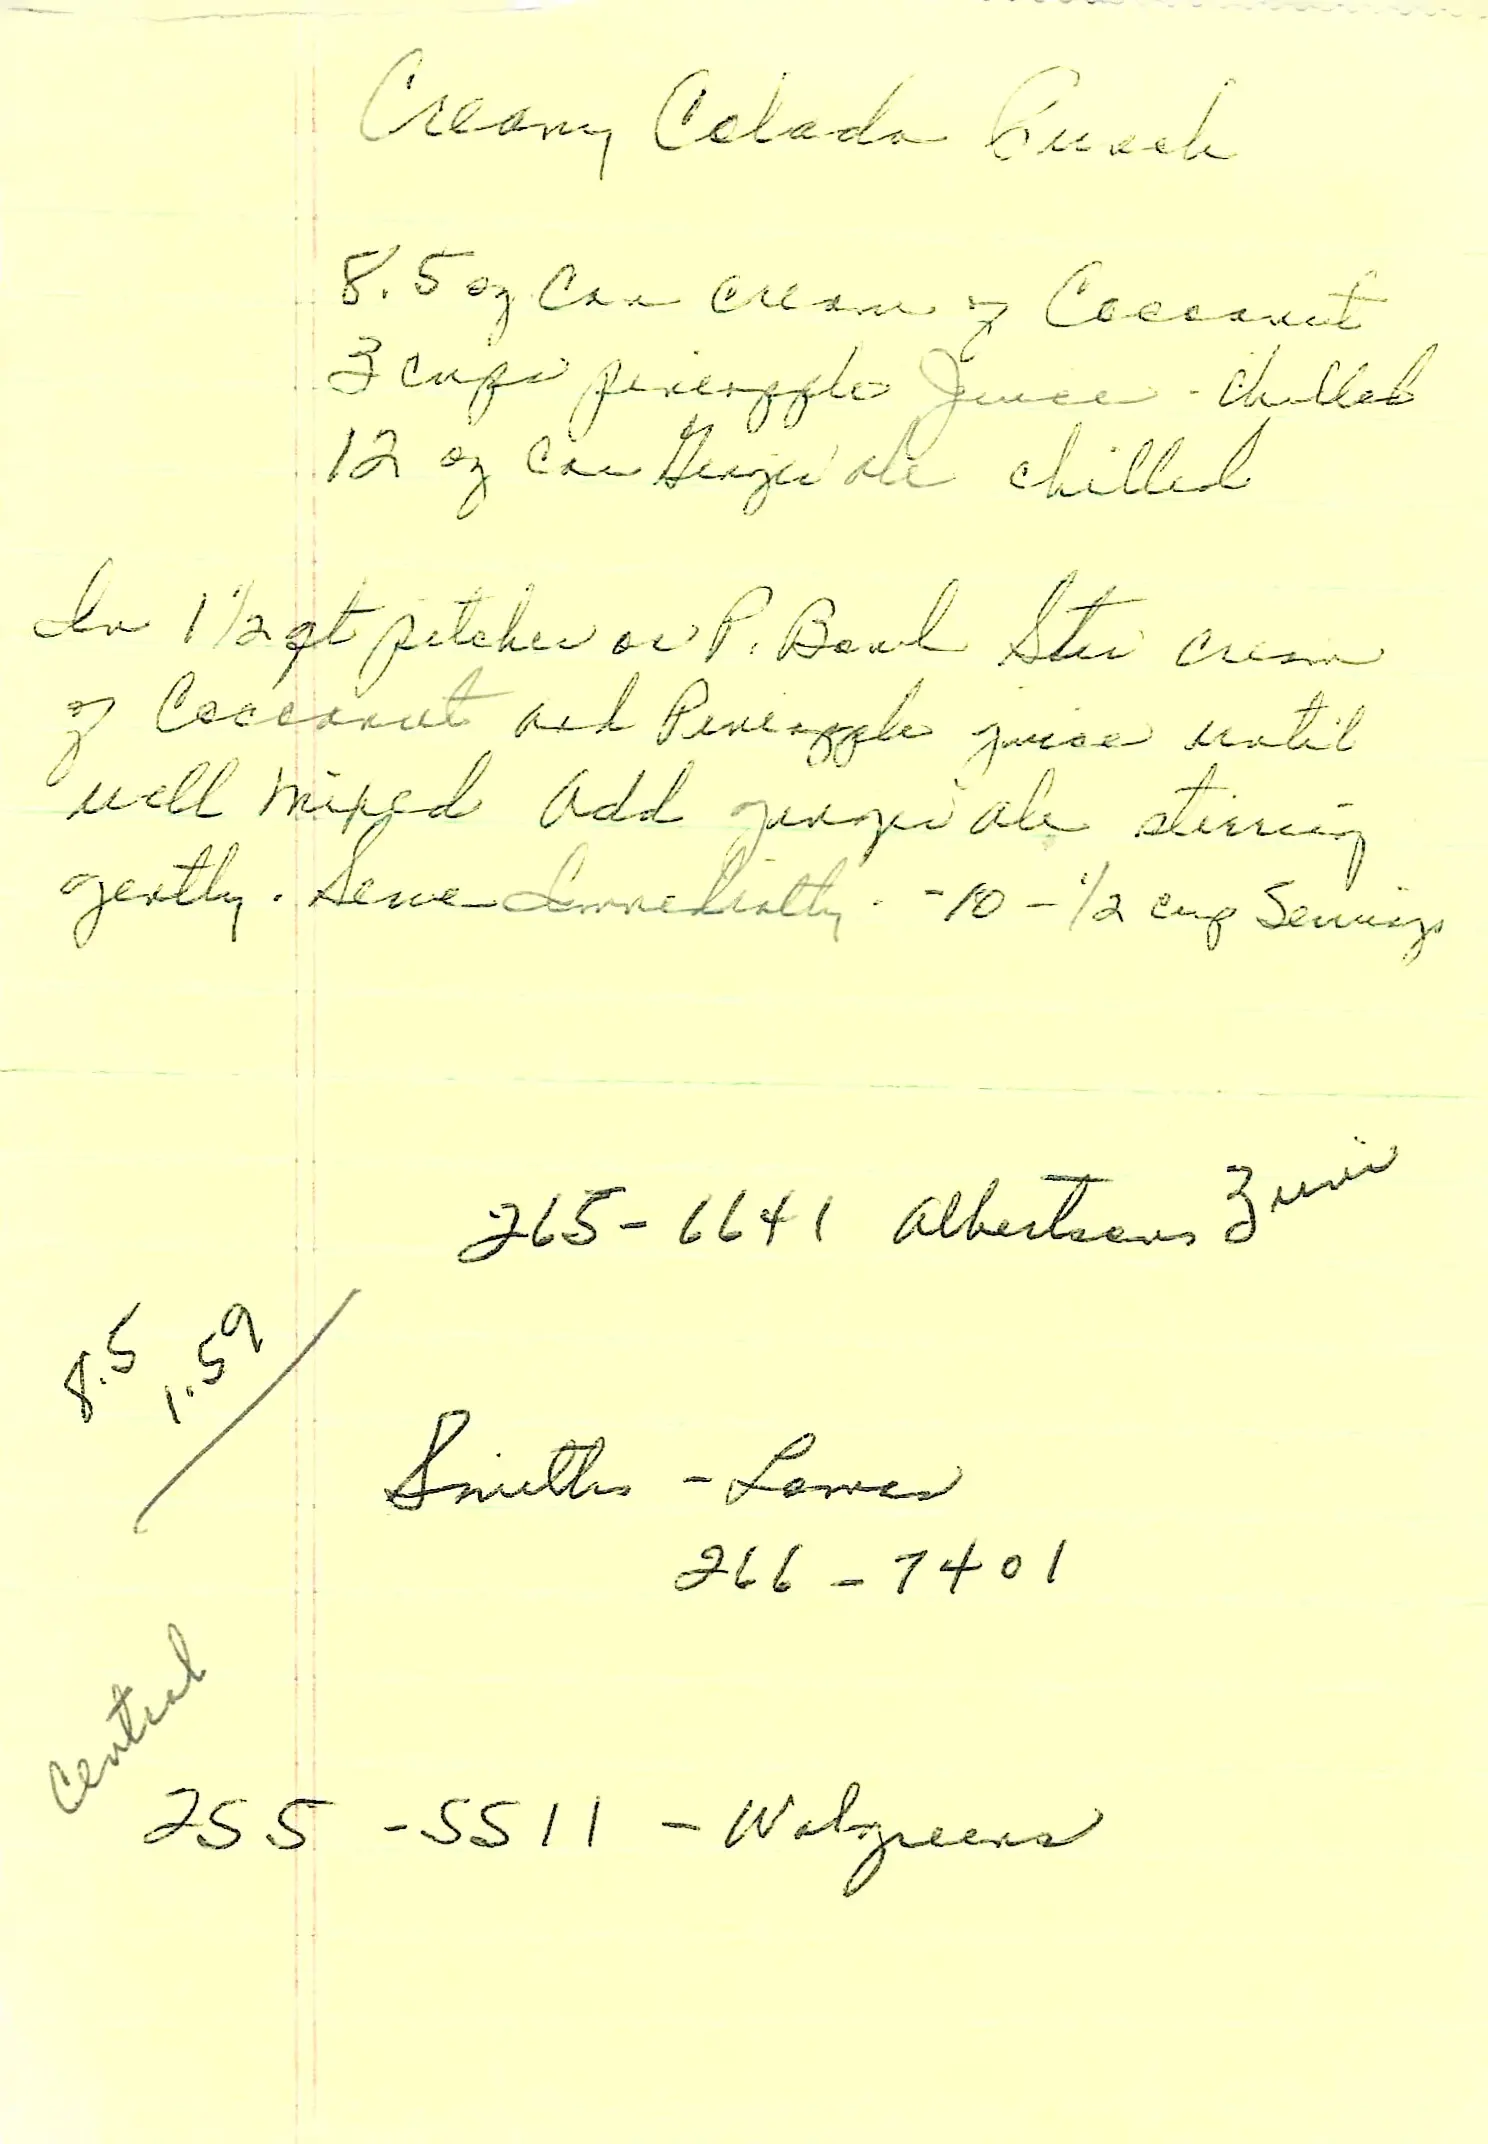 Creamy Colada Punch
8.5 oz Can cream of Coconut
3 cups pineapple Juice - chilled
12 oz can Ginger ale chilled
In 1 1/2 qt pitcher or P. Bowl Stir cream
of Cocconut and Pineapple juice until
well mixed Add ginger ale stirring
gently. Serve Immediatly. - 10 - 1/2 cup Servings
265-6641 Albertsons Zuni
8.5
1.59
Smiths - Lomas
266-7401
Central
255-5511 - Walgreens